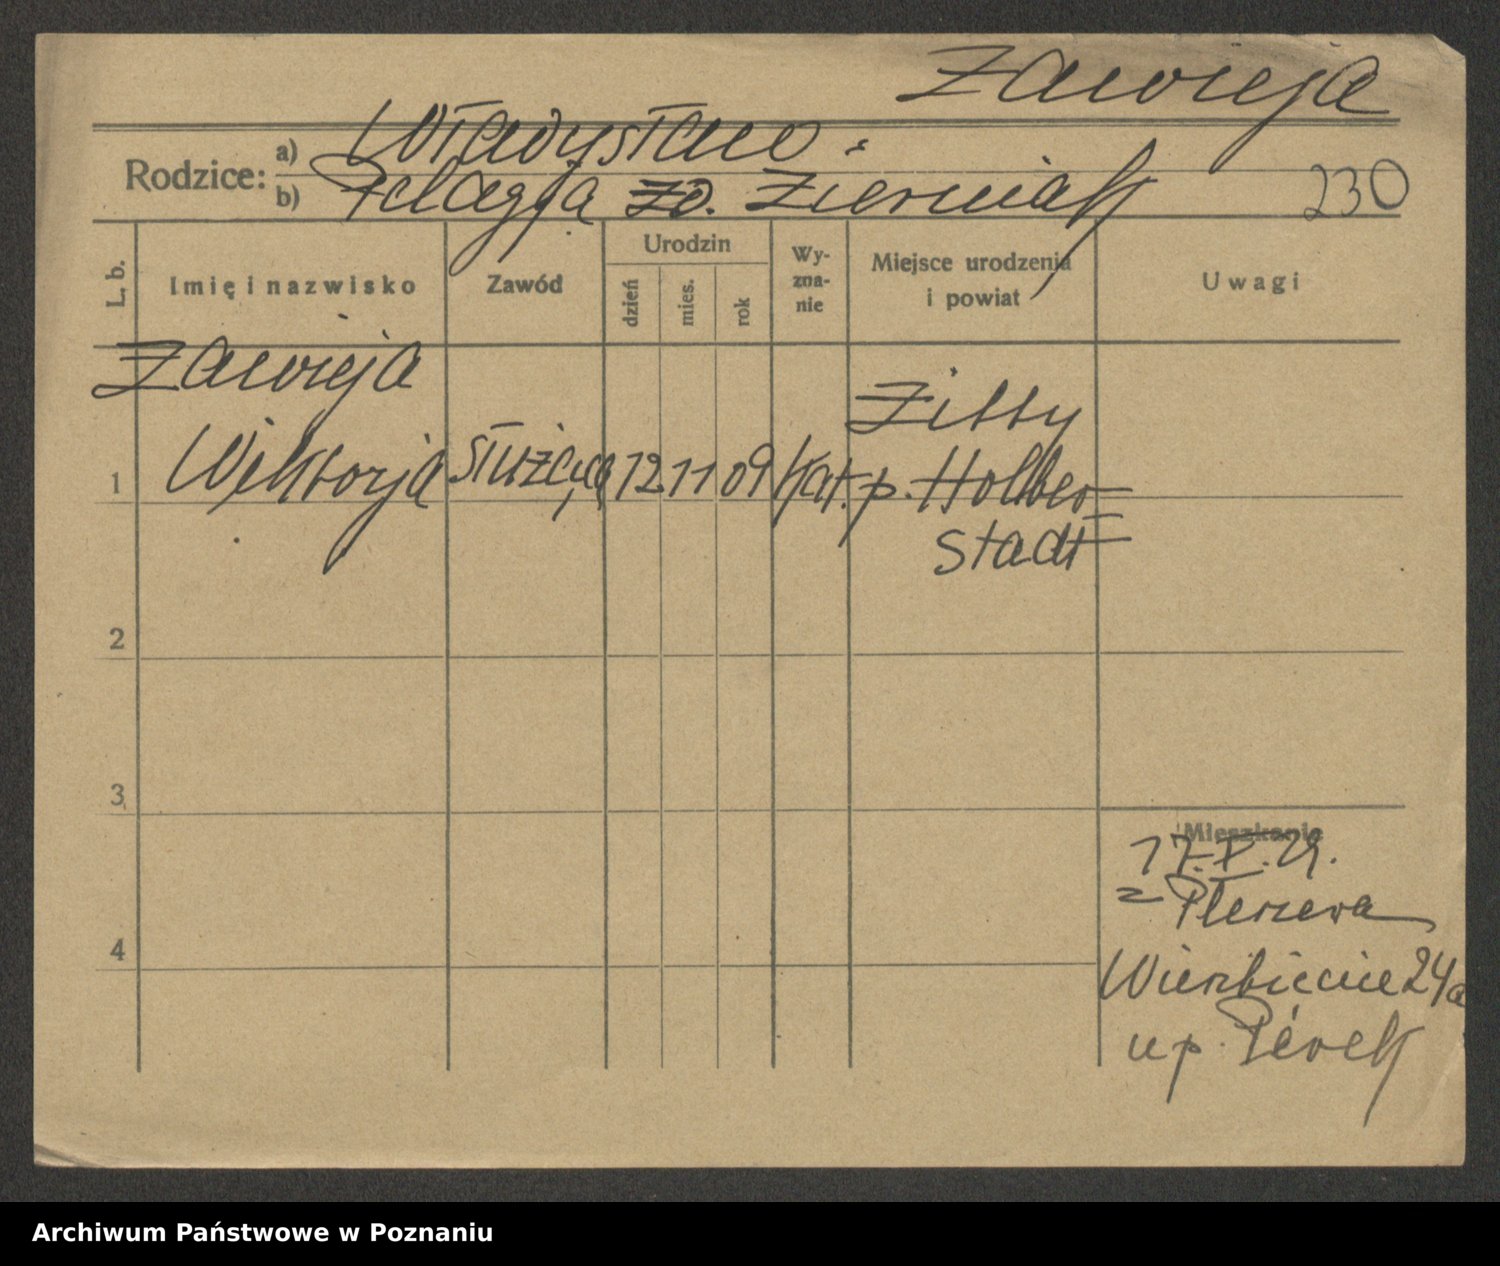 Zawieja
Rodzice: a) Władysław i
b) Pelagja zd. Zierniak 230
L. b. Imię i nazwisko Zawód Urodzin dzień mies. rok Wy-zna-nie Miejsce urodzenia i powiat Uwagi
Zawieja Zilly
1 Wiktorja służąca 12 11 09 kat. p. Holber=
stadt
2
3
Mieszkanie
17. X. 29.
z Pleszewa
4
Wierzbięcice 24a
u p. Piórek
Archiwum Państwowe w Poznaniu